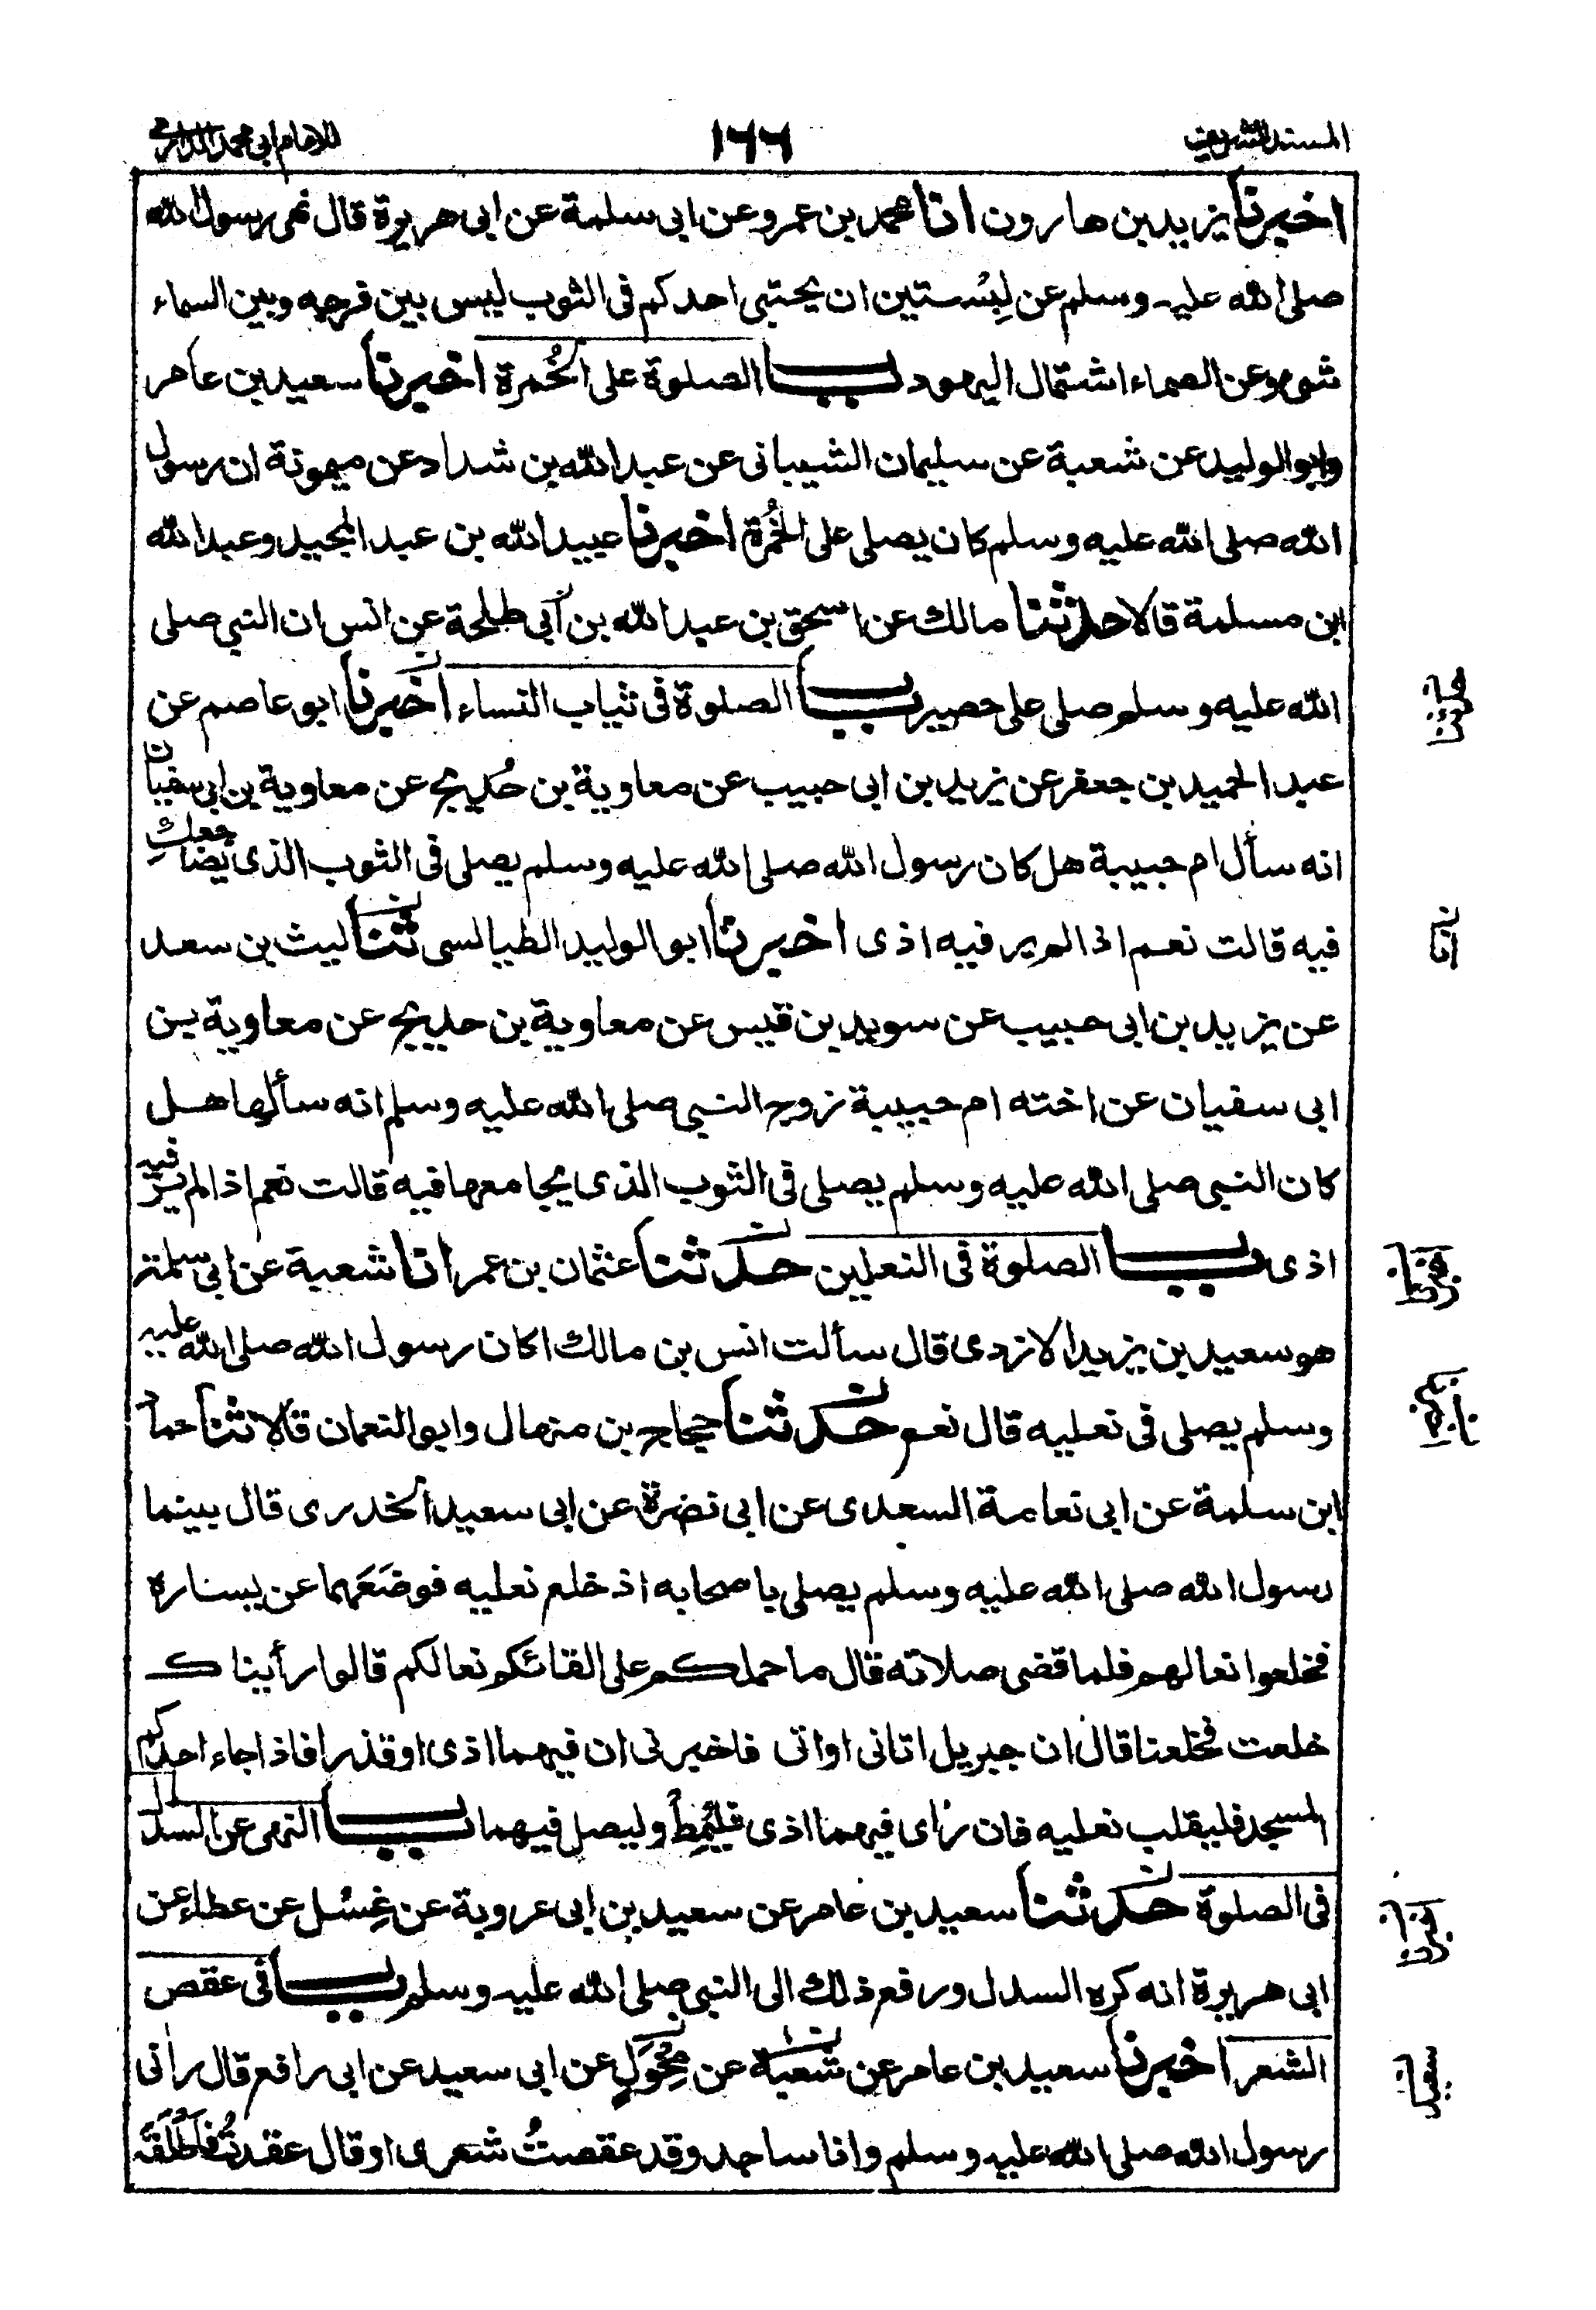 المسند الشريف ١٦٦ للامام ابي محمد الدارمي
اخبرنا يزيد بن هارون انا محمد بن عمرو عن ابي سلمة عن ابي هريرة قال نهى رسول الله
صلى الله عليه وسلم عن لِبْستين ان يحتبي احدكم في الثوب ليس بين فرجه وبين السماء
شيء وعن الصماء اشتمال اليهود باب الصلوة على الخُمرة اخبرنا سعيد بن عامر
وابو الوليد عن شعبة عن سليمان الشيباني عن عبد الله بن شداد عن ميمونة ان رسول
الله صلى الله عليه وسلم كان يصلي على الخُمرة اخبرنا عبيد الله بن عبد المجيد وعبد الله
ابن مسلمة قالا حدثنا مالك عن اسحق بن عبد الله بن أبي طلحة عن انس ان النبي صلى
الله عليه وسلم صلى على حصير باب الصلوة في ثياب النساء اخبرنا ابو عاصم عن
عبد الحميد بن جعفر عن يزيد بن ابي حبيب عن معاوية بن حُديج عن معاوية بن ابي سفيان
انه سأل ام حبيبة هل كان رسول الله صلى الله عليه وسلم يصلي في الثوب الذي يضاجعكِ
فيه قالت نعم اذا لم ير فيه اذى اخبرنا ابو الوليد الطيالسي ثنا ليث بن سعد
انا
عن يزيد بن ابي حبيب عن سويد بن قيس عن معاوية بن حديج عن معاوية بن
ابي سفيان عن اخته ام حبيبة زوج النبي صلى الله عليه وسلم انه سألها هل
كان النبي صلى الله عليه وسلم يصلي في الثوب الذي يجامعها فيه قالت نعم اذا لم ير فيه
اذى باب الصلوة في النعلين حدثنا عثمان بن عمر انا شعبة عن ابي سلمة
اخبرنا
هو سعيد بن يزيد الازدي قال سألت انس بن مالك اكان رسول الله صلى الله عليه
وسلم يصلي في نعليه قال نعم حدثنا حجاج بن منهال وابو النعمان قالا ثنا حماد
ابن سلمة عن ابي نعامة السعدي عن ابي نضرة عن ابي سعيد الخدري قال بينما
رسول الله صلى الله عليه وسلم يصلي باصحابه اذ خلع نعليه فوضَعَهما عن يساره
فخلعوا نعالهم فلما قضى صلاته قال ما حملكم على القائكم نعالكم قالوا رأيناك
خلعت فخلعنا قال ان جبريل اتاني او اتى فاخبرني ان فيهما اذى او قذرا فاذا جاء احدكم
المسجد فليقلب نعليه فان رأى فيهما اذى فليُمِطْ وليصل فيهما باب النهي عن السدل
في الصلوة حدثنا سعيد بن عامر عن سعيد بن ابي عروبة عن عِسْل عن عطاء عن
اخبرنا
ابي هريرة انه كره السدل ورفع ذلك الى النبي صلى الله عليه وسلم باب في عقص
الشعر اخبرنا سعيد بن عامر عن شعبة عن مُخَوَّلٍ عن ابي سعيد عن ابي رافع قال رأني
سعيد
رسول الله صلى الله عليه وسلم وانا ساجد وقد عقصتُ شعري او قال عقدتُ فاَطْلَقَه